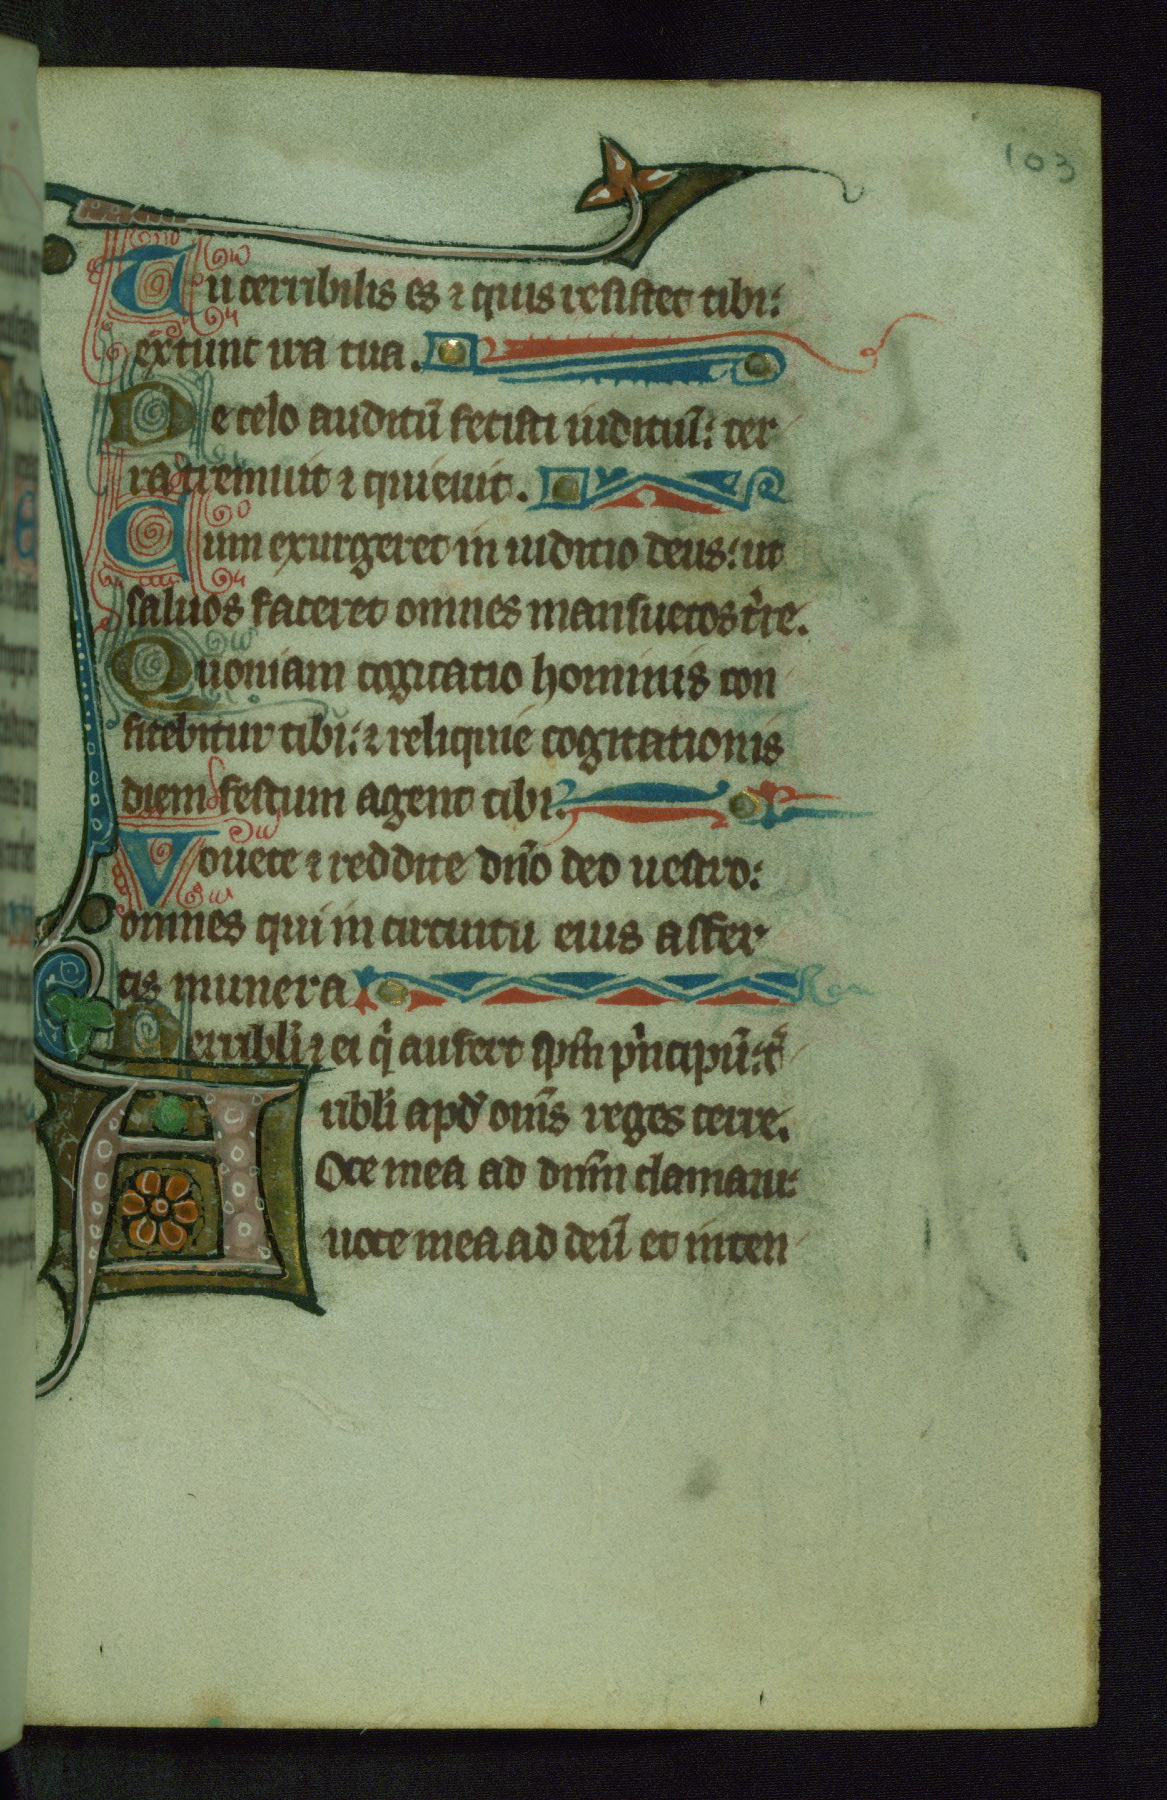 103
Tu terribilis es ⁊ quis resistet tibi:
extunc ira tua.
De celo auditū fecisti iudiciū: ter
ra tremuit ⁊ quieuit.
Cum exurgeret in iudicio deus: ut
saluos faceret omnes mansuetos t̄re.
Quoniam cogitatio hominis con
fitebitur tibi: ⁊ reliquie cogitationis
diem festum agent tibi.
Vouete ⁊ reddite dn̄o deo uestro:
omnes qui in circuitu eius affer
tis munera
Terribli ⁊ ei q̇ aufert sp̄m p̄ncipū: t̄
ribli apđ om̄s reges terre.
Oce mea ad dn̄m clamaui:
uoce mea ad deū et inten